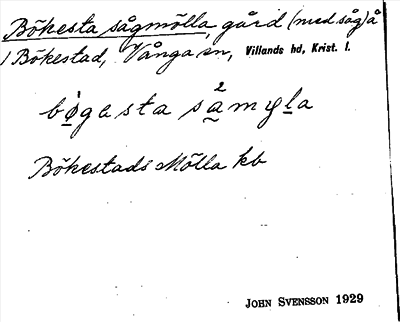 Bökesta sågmölla, gård (med såg) å
1 Bökestad, Vånga sn, Villands hd, Krist. l.
bø̀gasta så²myla
Bökestads Mölla kb
JOHN SVENSSON 1929